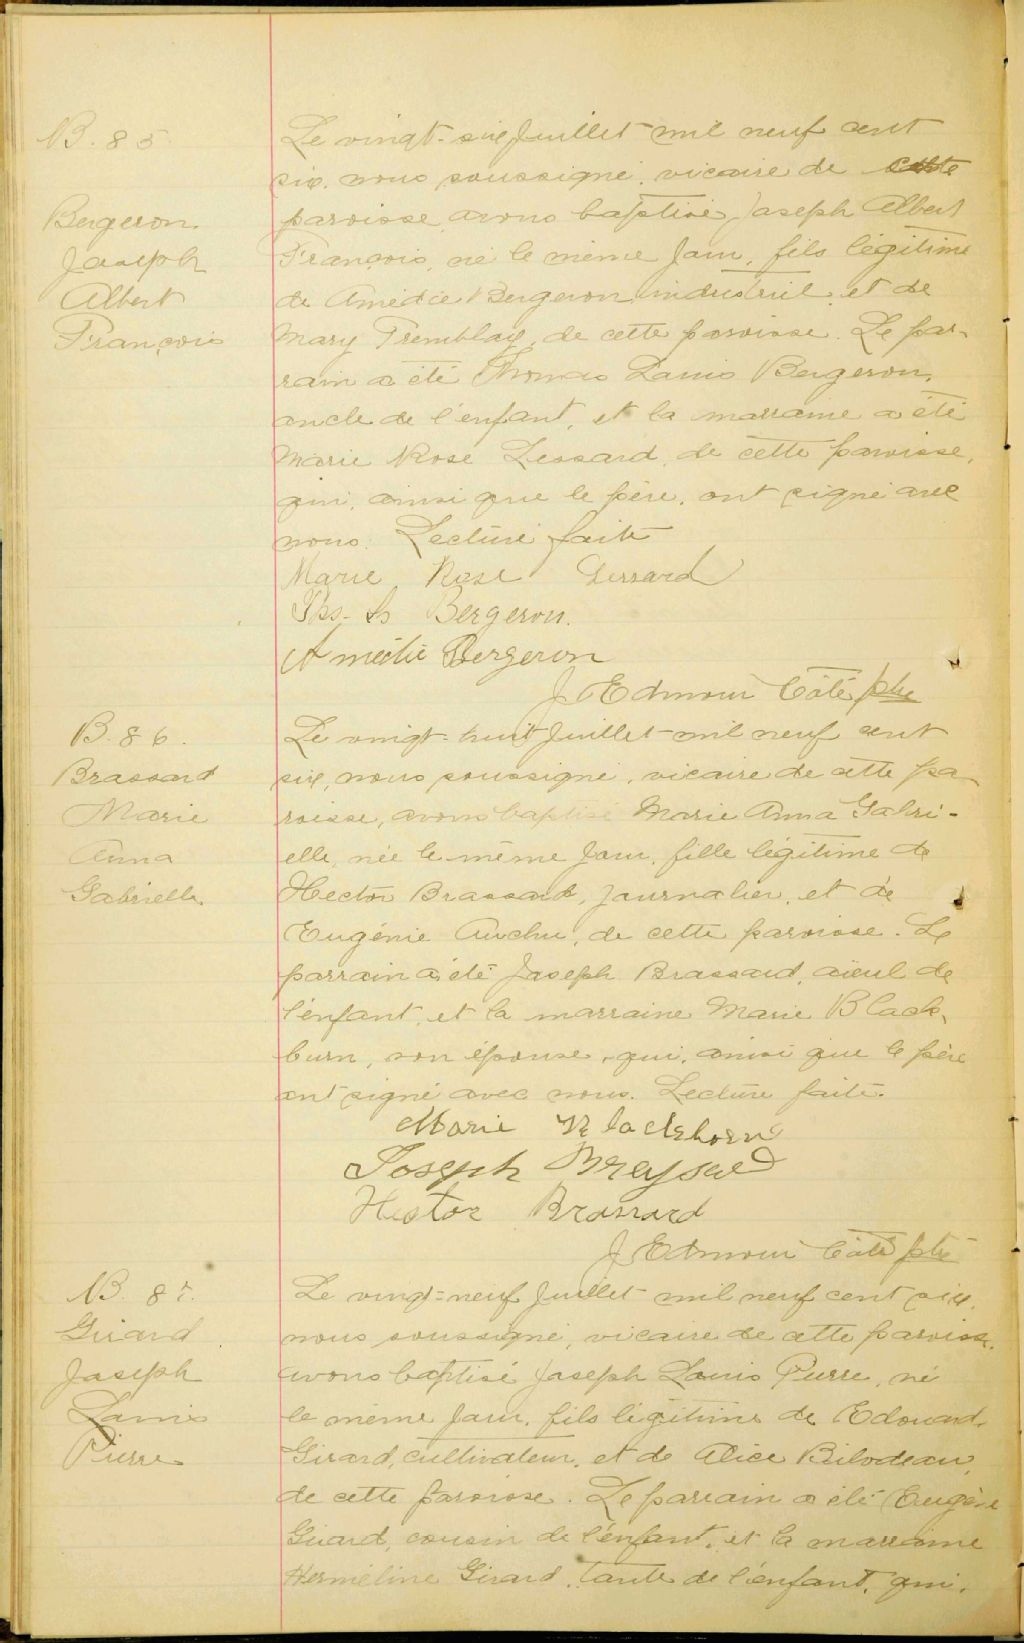 B. 85.
Bergeron
Joseph
Albert
François
Le vingt-six Juillet mil neuf cent
six, nous soussigné, vicaire de cette
paroisse avons baptisé Joseph Albert
François, né le même jour, fils légitime
de Amédée Bergeron, industriel, et de
Mary Tremblay, de cette paroisse. Le par-
rain a été Thomas Louis Bergeron,
oncle de l'enfant, et la marraine a été
Marie Rose Lessard, de cette paroisse,
qui, ainsi que le père, ont signé avec
nous. Lecture faite
Marie Rose Lessard
Ths. Ls Bergeron.
Amédée Bergeron
J Edmour Côté ptre
B. 86.
Brassard
Marie
Anna
Gabrielle
Le vingt-huit Juillet mil neuf cent
six, nous soussigné, vicaire de cette pa
roisse, avons baptisé Marie Anna Gabri-
elle, née le même jour, fille légitime de
Hector Brassard, journalier, et de
Eugénie Auchu, de cette paroisse. Le
parrain a été Joseph Brassard, aïeul de
l'enfant, et la marraine Marie Black-
burn, son épouse, qui, ainsi que le père
ont signé avec nous. Lecture faite.
Marie
Joseph
Hector Brassard
J Edmour Côté ptre
B. 87.
Girard
Joseph
Louis
Pierre
Le vingt-neuf Juillet mil neuf cent six,
nous soussigné, vicaire de cette paroisse,
avons baptisé Joseph Louis Pierre, né
le même jour, fils légitime de Edouard
Girard, cultivateur, et de Alice Bilodeau,
de cette paroisse. Le parrain a été Eugène
Girard, cousin de l'enfant, et la marraine
Herméline Girard, tante de l'enfant, qui,